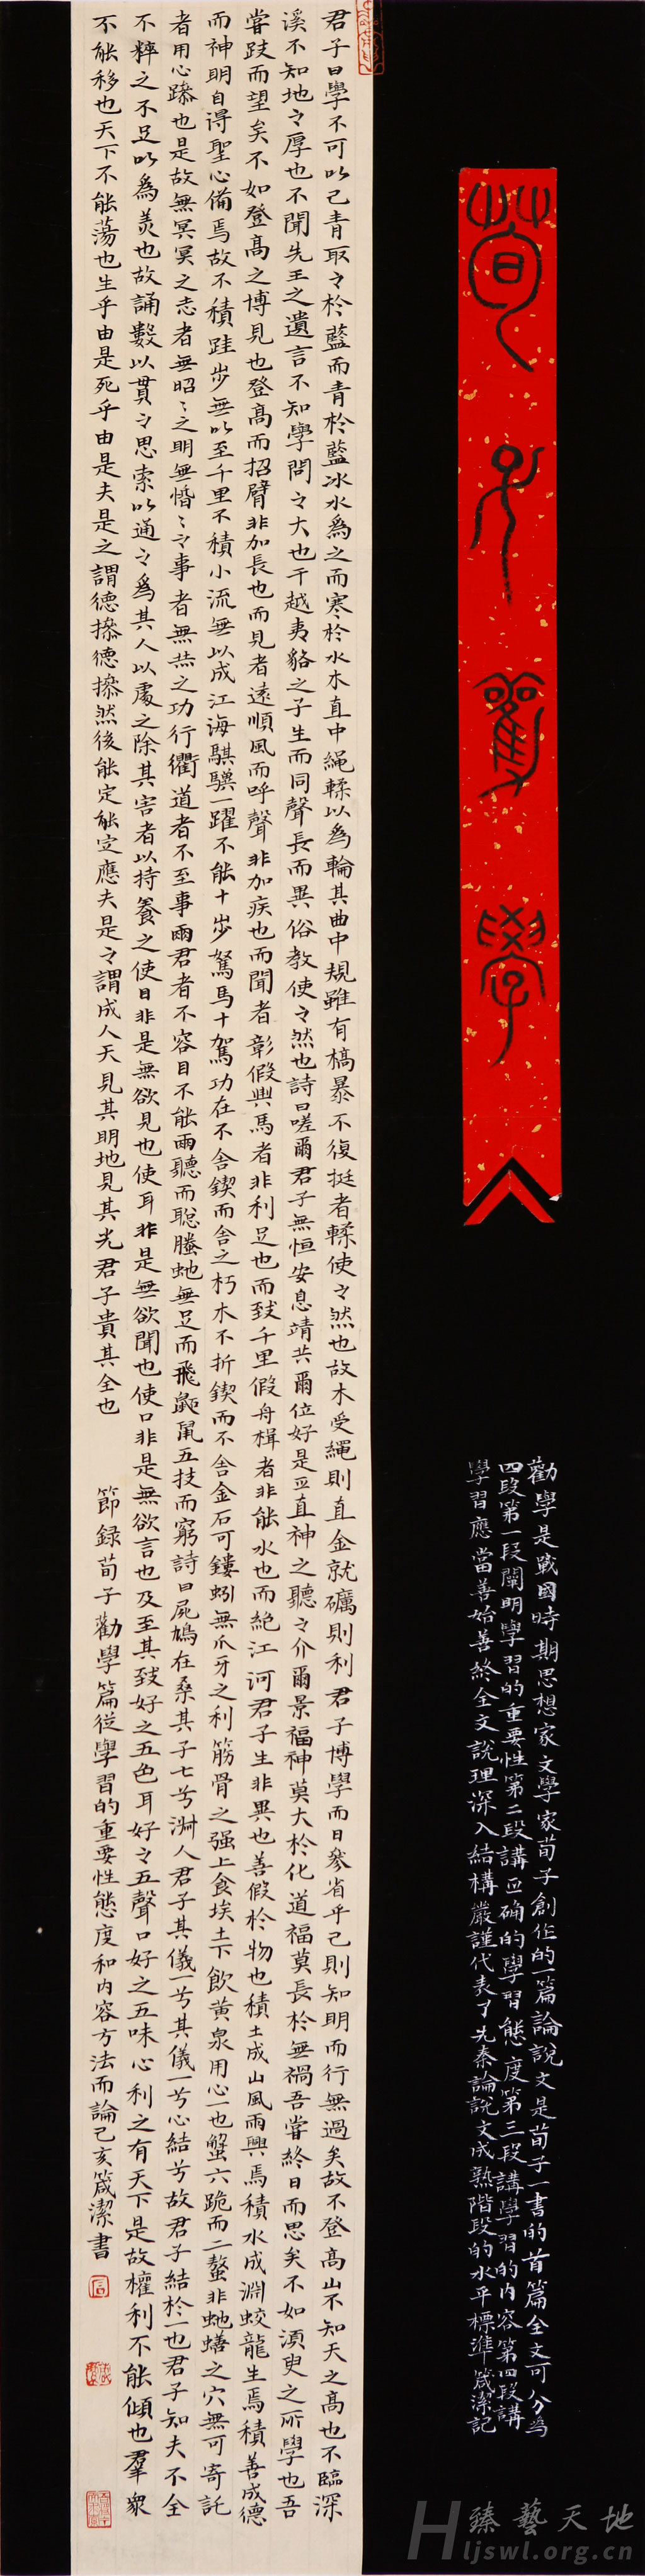 荀子勸學
勸學是戰國時期思想家文學家荀子創作的一篇論說文是荀子一書的首篇全文可分為
四段第一段闡明學習的重要性第二段講正确的學習態度第三段講學習的內容第四段講
學習應當善始善終全文說理深入結構嚴謹代表了先秦論說文成熟階段的水平標準箴潔記
君子曰學不可以已青取之於藍而青於藍冰水為之而寒於水木直中繩輮以為輪其曲中規雖有槁暴不復挺者輮使之然也故木受繩則直金就礪則利君子博學而日參省乎己則知明而行無過矣故不登高山不知天之高也不臨深
溪不知地之厚也不聞先王之遺言不知學問之大也干越夷貉之子生而同聲長而異俗教使之然也詩曰嗟爾君子無恒安息靖共爾位好是正直神之聽之介爾景福神莫大於化道福莫長於無禍吾嘗終日而思矣不如須臾之所學也吾
嘗跂而望矣不如登高之博見也登高而招臂非加長也而見者遠順風而呼聲非加疾也而聞者彰假輿馬者非利足也而致千里假舟楫者非能水也而絕江河君子生非異也善假於物也積土成山風雨興焉積水成淵蛟龍生焉積善成德
而神明自得聖心備焉故不積跬步無以至千里不積小流無以成江海騏驥一躍不能十步駑馬十駕功在不舍鍥而舍之朽木不折鍥而不舍金石可鏤蚓無爪牙之利筋骨之强上食埃土下飲黃泉用心一也蟹六跪而二螯非虵蟮之穴無可寄託
者用心躁也是故無冥冥之志者無昭〻之明無惛〻之事者無赫之功行衢道者不至事兩君者不容目不能兩聽而聰螣虵無足而飛鼫鼠五技而窮詩曰屍鳩在桑其子七兮淋人君子其儀一兮其儀一兮心結兮故君子結於一也君子知夫不全
不粹之不足以為美也故誦數以貫之思索以通之為其人以處之除其害者以持養之使目非是無欲見也使耳非是無欲聞也使口非是無欲言也及至其致好之五色耳好之五聲口好之五味心利之有天下是故權利不能傾也羣眾
不能移也天下不能蕩也生乎由是死乎由是夫是之謂德操德操然後能定能定應夫是之謂成人天見其明地見其光君子貴其全也　節録荀子勸學篇從學習的重要性態度和內容方法而論己亥箴潔書
臻藝天地
Hljswl.org.cn